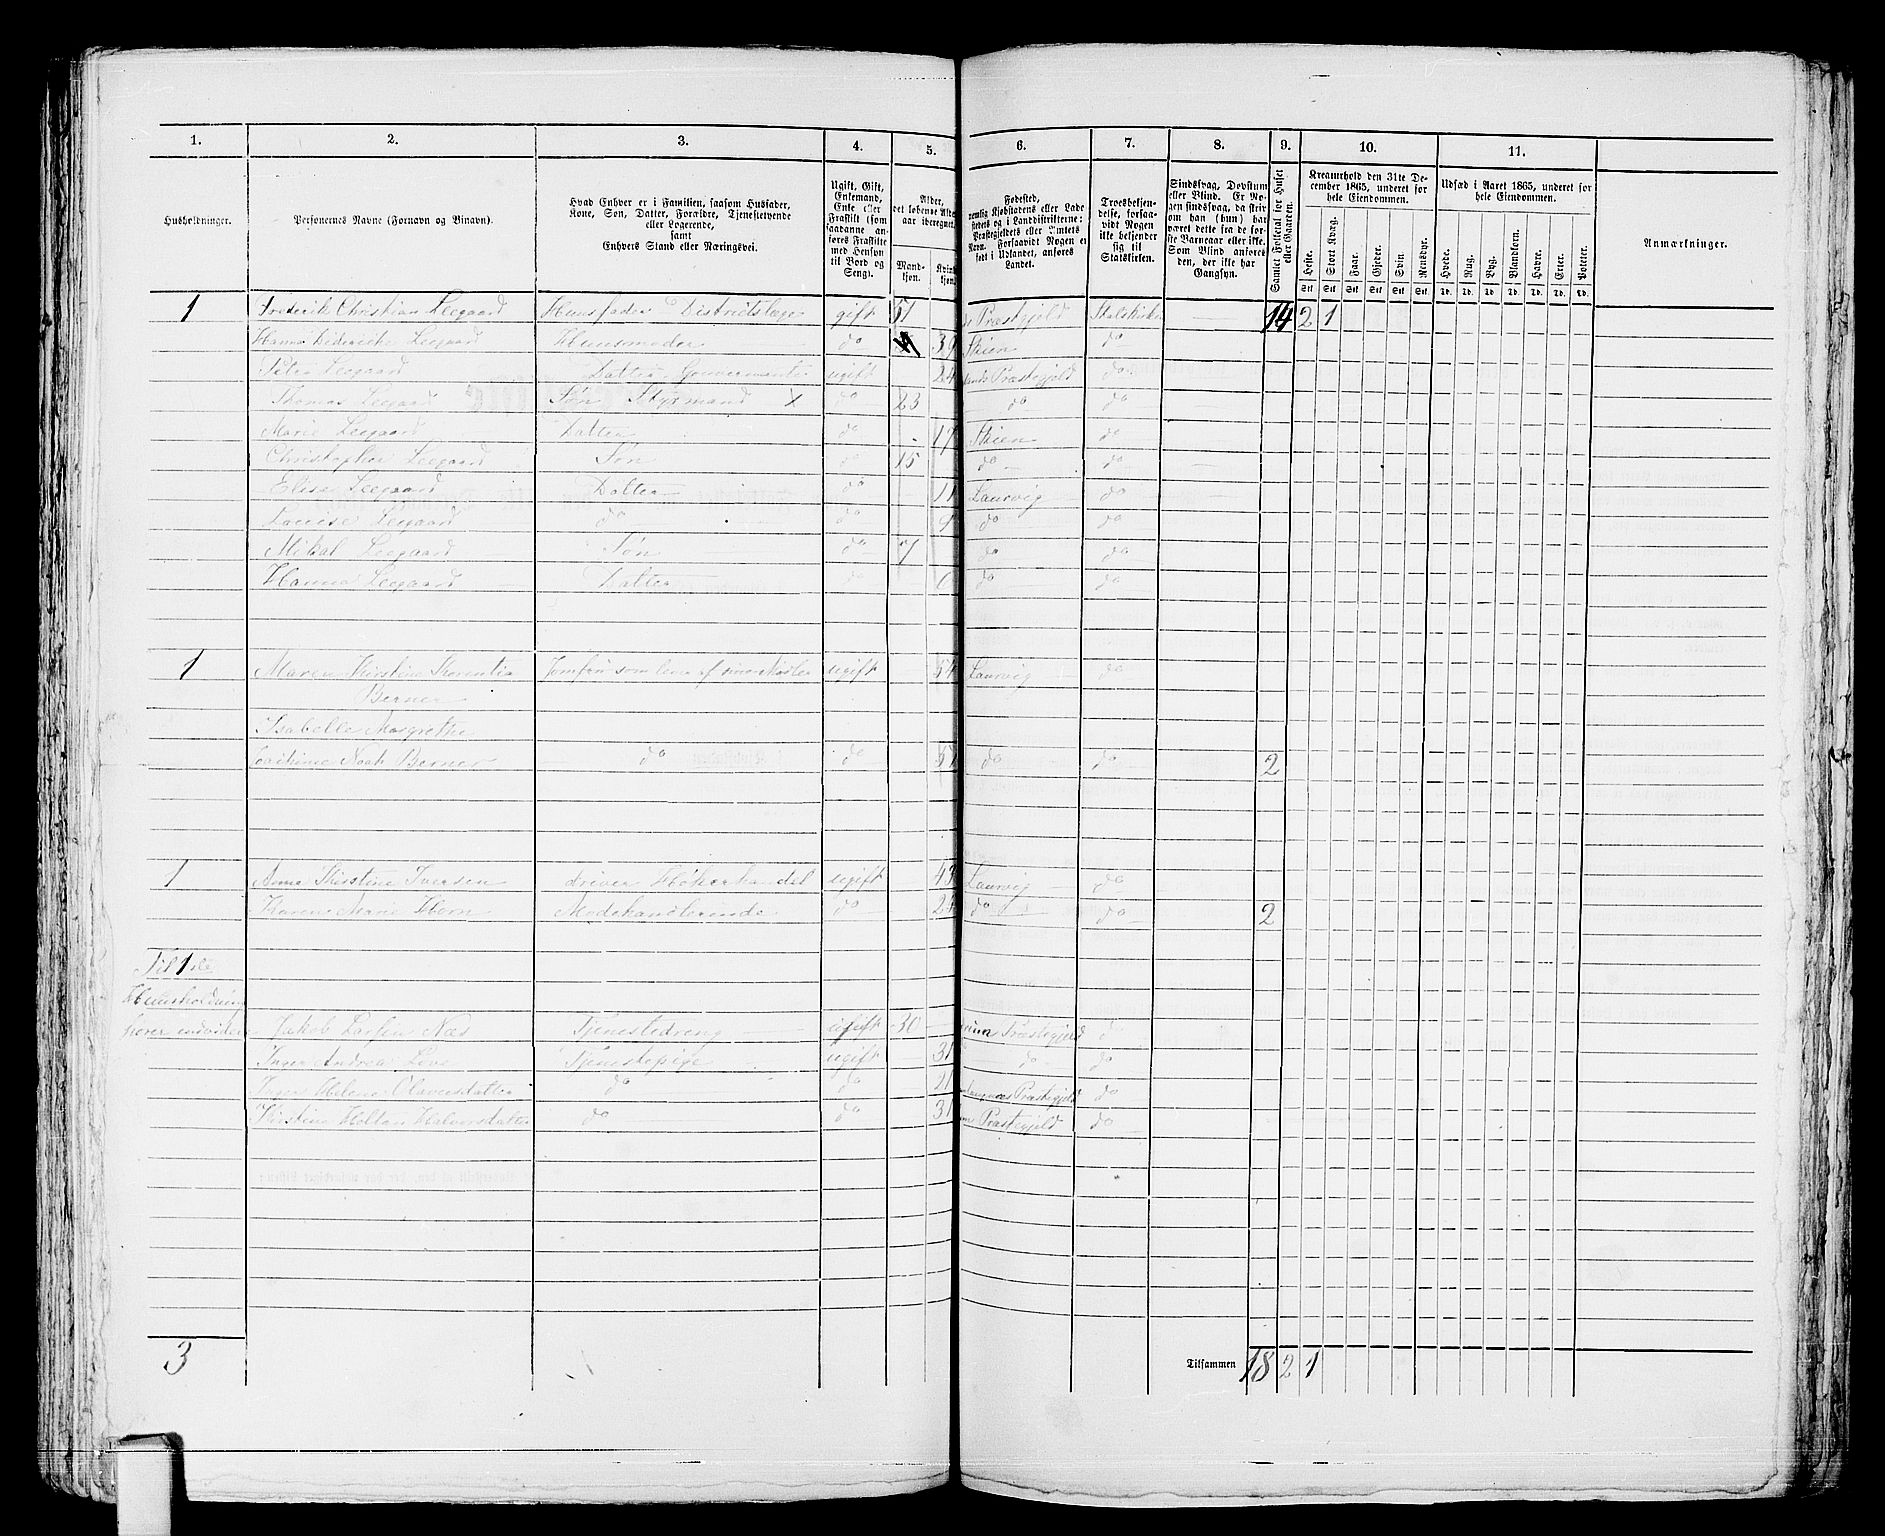 1. 2. 3. 4. 5. 6. 7. 8. 9. 10. 11.
Husholdninger.
Personernes Navne (Fornavn og Binavn).
Hvad Enhver er i Familien, saasom Husfader,
Kone, Søn, Datter, Forældre, Tjenestetyende
eller Logerende,
samt
Enhvers Stand eller Næringsvei.
Ugift, Gift,
Enkemand,
Enke eller
Fraskilt (som
saadanne an-
føres Fraskilte
med Hensyn
til Bord og
Seng).
Alder,
det løbende Alders-
aar iberegnet.
Mand-
kjøn.
Kvin-
kjøn.
Fødested,
nemlig Kjøbstadens eller Lade
stedets og i Landdistrikterne:
Præstegjeldets eller Amtets
Navn. Forsaavidt Nogen er
født i Udlandet, anføres
Landet.
Troesbekjen-
delse, forsaa-
vidt Nogen
ikke bekjender
sig til
Statskirken.
Sindssvag, Døvstum
eller Blind. Er No-
gen sindssvag, da skriv
om han (hun) har
været dette fra de før-
ste Barneaar eller ikke.
Som Blind anføres
den, der ikke har
Gangsyn.
Samlet Folketal for Huset
eller Gaarden.
Kreaturhold den 31te De-
cember 1865, underet for
hele Eiendommen.
Heste. Stort Kvæg. Faar. Gjeder. Svin. Rensdyr.
Stk Stk Stk Stk Stk Stk
Udsæd i Aaret 1865, underet for
hele Eiendommen.
Hvede. Rug. Byg. Blandkorn. Havre. Erter. Poteter.
Td. Td. Td. Td. Td. Td. Td.
Anmærkninger.
1 Frederik Christian Leegaard Huusfader Districtslæge gift 51 Præstegjeld Statskirke 14 2 1
Hanna Diderike Leegaard Huusmoder do 39 Skien do
Petra Leegaard Datter Gouvernante ugift 24 Præstegjeld do
Thomas Leegaard Søn Styrmand X do 23 do do
Marie Leegaard Datter do 17 Skien do
Christopher Leegaard Søn do 15 do do
Elise Leegaard Datter do 11 Laurvig do
Louise Leegaard do do 9 do do
Mikal Leegaard Søn do 7 do do
Hanna Leegaard Datter do do do
1 Maren Kirstine Jomfru som lever af sine Midler ugift 54 Laurvig do
Berner
Isabelle Margrethe
Noah Berner do do 57 do do 2
1 Anna Kirstine Iversen driver Høkerhandel ugift 43 Laurvig do
Karen Marie Horn Modehandlerinde do do do 2
Til 1ste
Huusholdning
hører endvidere Jakob Larsen Næs Tjenestedreng ugift 30 Præstegjeld do
Inger Andrea Tjenestepige ugift 31 do do
Inger Helene Olavesdatter do do 21 Præstegjeld do
Kirstine Holtan Halvorsdatter do do 31 Præstegjeld do
3 Tilsammen 18 2 1